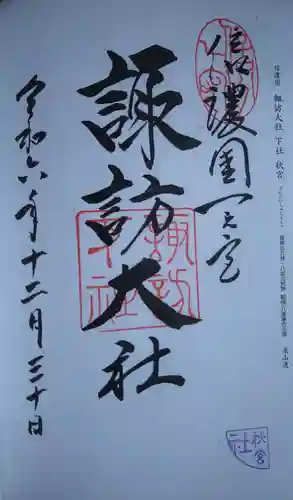 信濃国 諏訪大社 下社 秋宮
信濃國一之宮
諏訪大社
令和六年十二月三十日
諏訪大社
秋宮
社